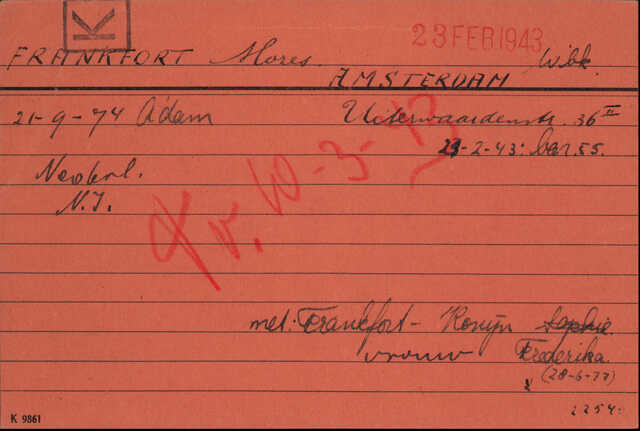 K
23 FEB 1943
FRANKFORT Mozes. Wbk.
AMSTERDAM
21-9-74 Adam Uiterwaardenstr. 36 II
23-2-43: bar. 55.
Nederl.
N.I.
Tr. 10-3-43
met: Frankfort- Konijn Sophie
vrouw Frederika.
(28-6-77)
K 9861